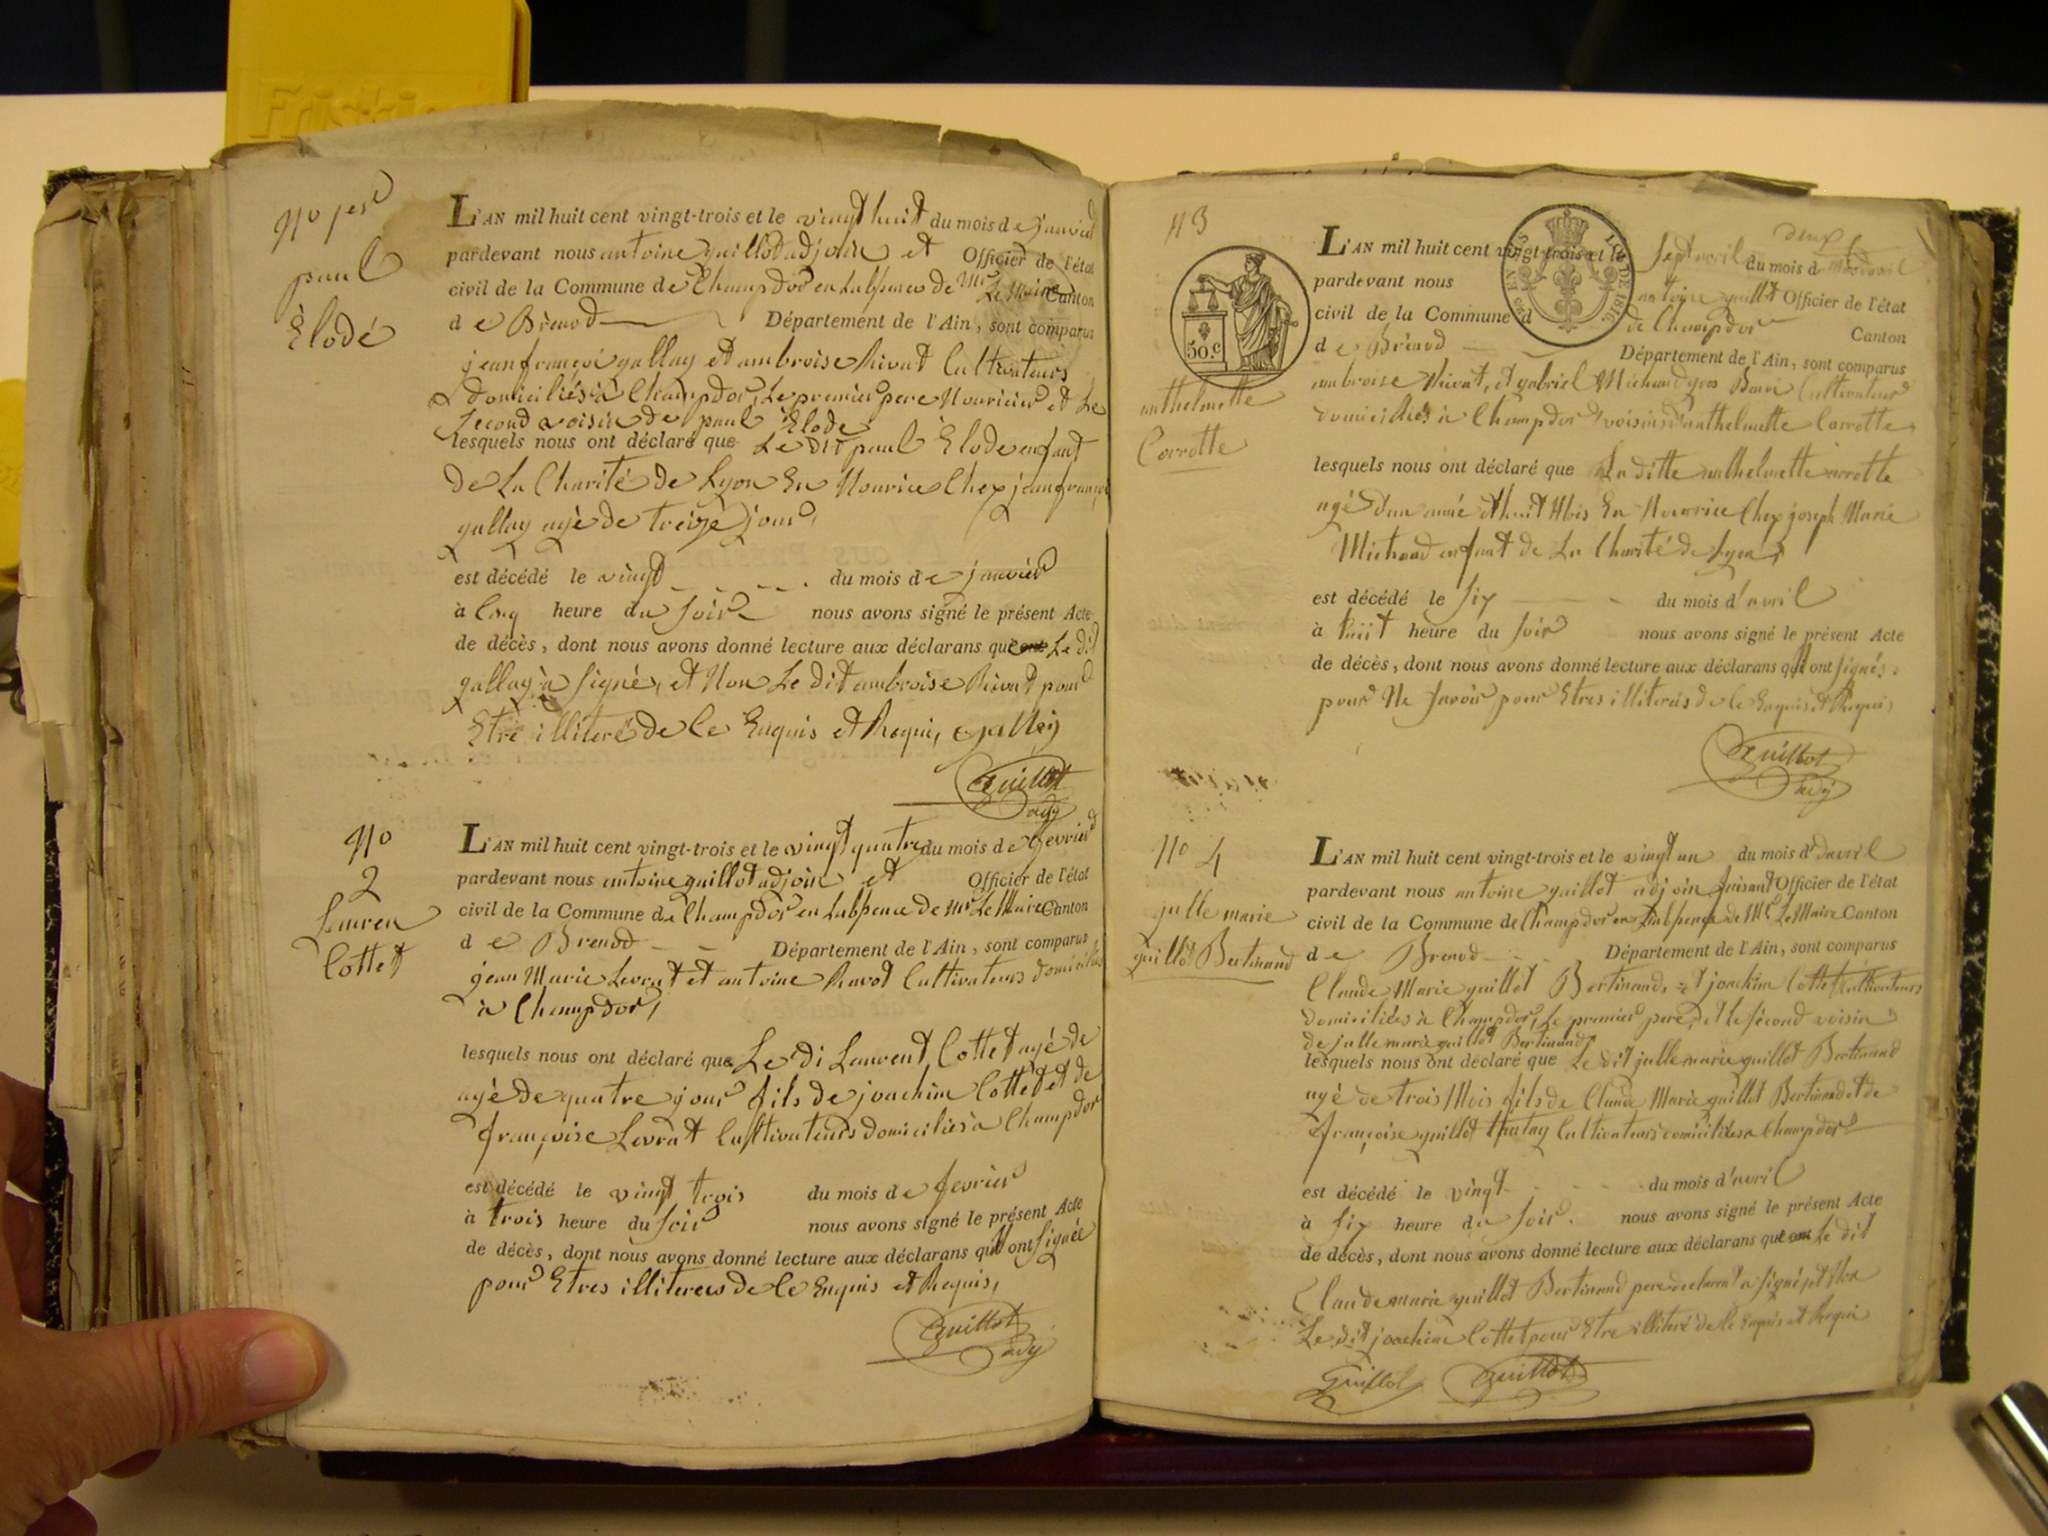 Friskies
No 1er
paul
Èlodé
L'AN mil huit cent vingt-trois et le vingt huit du mois de janvier
pardevant nous antoine guillot adjoin et Officier de l'état
civil de la Commune de Champdor en labsence de Mr Le Maire Canton
de Brenod Département de l'Ain, sont comparus
jean françoi gallay et ambroise Rivat Cultivateurs
domiciliés à Champdor, Le premier pere Nouricier et Le
Second voisin de paul Elode
lesquels nous ont déclaré que Le dit paul Elode enfant
de La Charité de Lyon En Nourice Chex jean françoi
gallay agè de treize jour,
est décédé le vingt du mois de janvier
à Cinq heure du Soir nous avons signé le présent Acte
de décès, dont nous avons donné lecture aux déclarans que ont Le dit
gallay à Signé, et Non Le dit ambroise Rivat pour
Etre illiteré de Ce Enquis et Requi, Galley
Guillot
adj
No
2
Lauren
Cottet
L'AN mil huit cent vingt-trois et le vingt quatre du mois de fevrier
pardevant nous antoine guillot adjoin et Officier de l'état
civil de la Commune de Champdor en labsence de Mr Le Maire Canton
de Brenod Département de l'Ain, sont comparus
jean Marie Levrat et antoine Ravot Cultivateurs domicilies
à Champdor,
lesquels nous ont déclaré que Le di Laurent Cottet agé de
agé de quatre jour fils de joachim Cottet et de
françoise Levrat Cultivateurs domiciliés à Champdor
est décédé le vingt trois du mois de fevrier
à trois heure du Soir nous avons signé le présent Acte
de décès, dont nous avons donné lecture aux déclarans quil ont Signée
pour Etres illiterees de Ce Enquis et Requis,
Guillot
adj
N 3
50 c
anthelmette
Corrotte
L'AN mil huit cent vingt-trois et le Sept avril du mois d
pardevant nous antoine guillot Officier de l'état
civil de la Commune d de Champdor Canton
de Brenod Département de l'Ain, sont comparus
ambroise Rivat, et gabriel Michaud gros Cultivateurs
domiciliés à Champdor voisins danthelmette Corrotte
lesquels nous ont déclaré que La ditte anthelmette corrotte
agé dun anné et huit Mois En Nourrice Chex joseph Marie
Michaud enfant de La Charité de Lyon,
est décédé le Six du mois d'avril
à huit heure du Soir nous avons signé le présent Acte
de décès, dont nous avons donné lecture aux déclarans quil ont Signés
pour Ne Savoir pour Etres illiterés de Ce Enquis et Requis
Guillot
adj
No 4
julle marie
guillot Bertinand
L'AN mil huit cent vingt-trois et le vingt un du mois d'avril
pardevant nous antoine guillot adjoin faisant Officier de l'état
civil de la Commune de Champdor en Labsence de Mr Le Maire Canton
de Brenod Département de l'Ain, sont comparus
Claude Marie guillot Bertinand, et joachim Cottet Cultivateurs
domiciliés à Champdor, Le premier pere, et Le Second voisin
de julle marie guillot Bertinand
lesquels nous ont déclaré que Le dit julle marie guillot Bertinand
agé de trois Mois fils de Claude Marie guillot Bertinand et de
françoise guillot Cultivateurs domiciliés a Champdor
est décédé le vingt du mois d'avril
à Six heure du Soir. nous avons signé le présent Acte
de décès, dont nous avons donné lecture aux déclarans que ont Le dit
Claude marie guillot Bertinand pere declarent a Signé, et Non
Le dit joachim Cottet pour Etre illiteré de Ce Enquis et Requi
Guillot Guillot